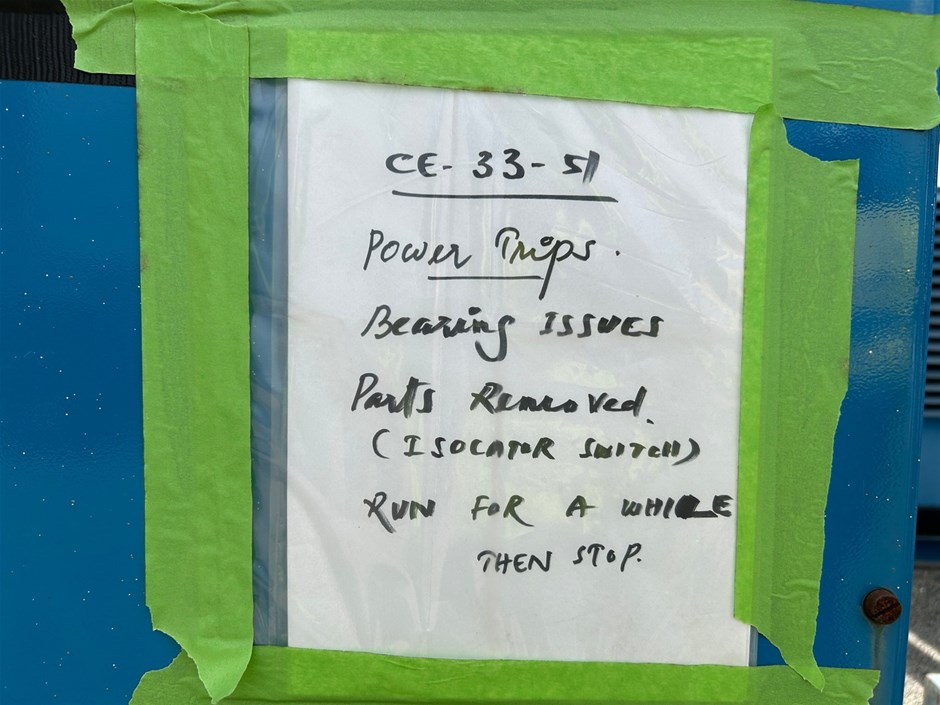 CE-33-51
Power Trips.
Bearing ISSUES
Parts Removed.
(ISOLATOR SWITCH)
RUN FOR A WHILE
THEN STOP.